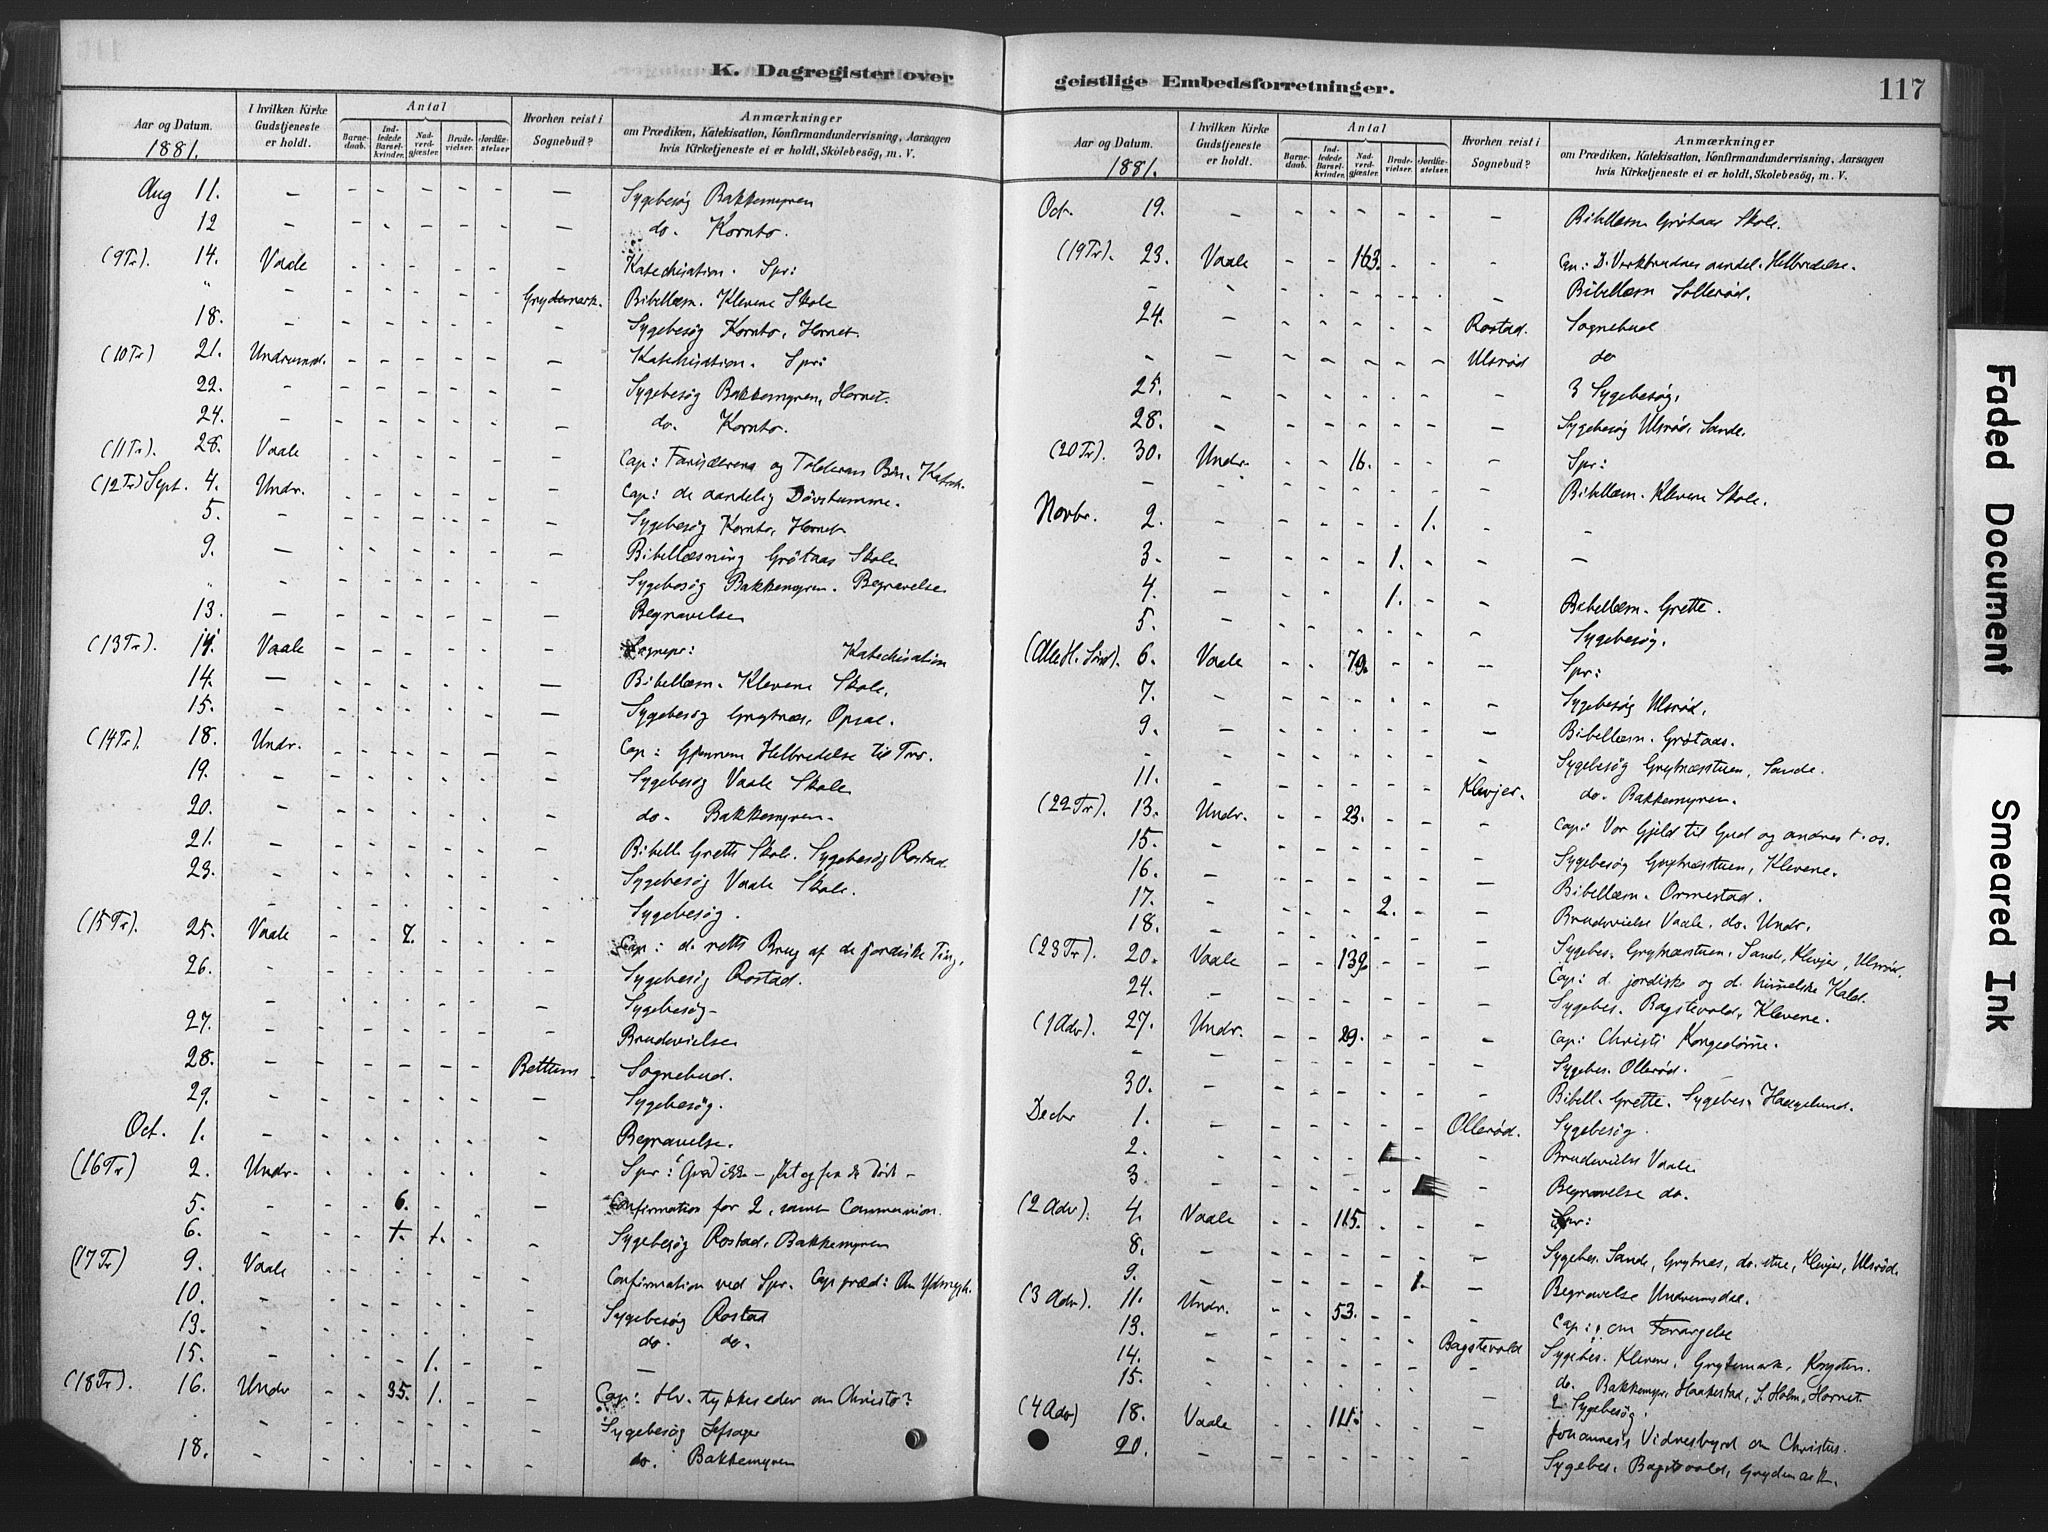 K. Dagregister over
geistlige Embedsforretninger.
117
Aar og Datum.
1881.
I hvilken Kirke Gudstjeneste er holdt.
Antal
Barnedaab.
Indledede Barselkvinder.
Nadverdgjæster.
Brudevielser.
Jordfæstelser
Hvorhen reist i Sognebud?
Anmærkninger
om Prædiken, Katekisation, Konfirmandundervisning, Aarsagen hvis Kirketjeneste ei er holdt, Skolebesög, m. V.
Aug 11. - - - - - - - Sygebesög Bakkemyren
12 - - - - - - - do. Kornbo.
(9 Tr). 14. Vaale - - - - - - Katechisation. Spr:
" - - - - - - Grydemark. Bibellæsn. Klevene Skole
18. - - - - - - - Sygebesög Kornbo, Hornet.
(10 Tr) 21. Undrumsd. - - - - - - Katechisation. Spr:
22. - - - - - - - Sygebesög Bakkemyren, Hornet.
24. - - - - - - - do. Kornbo.
(11 Tr). 28. Vaale - - - - - - Cap: Farisæerens og Tolderens Bön. Katech.
(12 Tr) Sept. 4. Undr. - - - - - - Cap: de aandelig Dövstumme.
5. - - - - - - - Sygebesög Kornbo, Hornet
9. - - - - - - - Bibellæsning Grötaas Skole
" - - - - - - - Sygebesög Bakkemyren. Begravelse
13. - - - - - - - Begravelse
(13 Tr). 11. Vaale - - - - - - Sognepr: Katechisation
14. - - - - - - - Bibellæsn. Klevene Skole.
15. - - - - - - - Sygebesög Grytnæs, Opsal.
(14 Tr). 18. Undr. - - - - - - Cap: Gjennem Helbredelse til Tro.
19. - - - - - - - Sygebesög Vaale Skole
20. - - - - - - - do. Bakkemyren.
21. - - - - - - - Bibell. Grette Skole. Sygebesög Rostad
23. - - - - - - - Sygebesög Vaale Skole.
- - - - - - - Sygebesög.
(15 Tr). 25. Vaale - - 7. - - - Cap: d. rette Brug af de jordiske Ting.
26. - - - - - - - Sygebesög Rostad.
- - - - - - - Sygebesög
27. - - - - - - - Brudevielse
28. - - - - - - Bettum Sognebud.
29. - - - - - - - Sygebesög.
Oct. 1. - - - - - - - Begravelse.
(16 Tr) 2. Undr. - - - - - - Spr:
5. - - - 6. - - - Confirmation for 2, samt Communion.
6. - - - +. +. - - Sygebesög Rostad, Bakkemyren
(17 Tr) 9. Vaale - - - - - - Confirmation ved Spr. Cap præd:
10. - - - - - - - Sygebesög Rostad
13. - - - - - - - do. do.
15. - - - - 1. - - -
(18 Tr). 16. Undr - - 35. 1. - - Cap: Hv. tykkes eder om Christo?
- - - - - - - Sygebesög
18. - - - - - - - do. Bakkemyren
Aar og Datum.
1881.
I hvilken Kirke Gudstjeneste er holdt.
Antal
Barnedaab.
Indledede Barselkvinder.
Nadverdgjæster.
Brudevielser.
Jordfæstelser.
Hvorhen reist i Sognebud?
Anmærkninger
om Prædiken, Katekisation, Konfirmandundervisning, Aarsagen hvis Kirketjeneste ei er holdt, Skolebesög, m. V.
Oct. 19. - - - - - - - Bibellæsn Grötaas Skole.
(19 Tr) 23. Vaale - - 163. - - - Cap: D. Verkbrudnes aandel. Helbredelse.
- - - - - - - - Bibellæsn Sollerød.
24. - - - - - - Rostad. Sognebud
- - - - - - - Ulsrød do
25. - - - - - - - 3 Sygebesög.
28. - - - - - - - Sygebesög Ulsrød, Sande.
(20 Tr). 30. Undr. - - 16. - - - Spr:
- - - - - - - Bibellæsn. Klevene Skole.
Novbr. 2. - - - - - 1. - -
3. - - - - 1. - - -
4. - - - - 1. - - Bibellæsn. Grette.
5. - - - - - - - Sygebesög.
(Alle H. Sönd). 6. Vaale - - 79. - - - Spr:
7. - - - - - - - Sygebesög Ulsrød.
9. - - - - - - - Bibellæsn. Grötaas.
- - - - - - - Sygebesög Grytnæsstuen, Sande.
11. - - - - - - Klevjer. do. Bakkemyren.
(22 Tr). 13. Undr. - - 23. - - - Cap: Vor Gjeld til Gud og andres t. os.
15. - - - - - - - Sygebesög Grytnæsstuen, Klevene.
16. - - - - - - - Bibellæsn. Ormestad.
17. - - - - 2. - - Brudevielse Vaale, do. Undr.
18. - - - - - - - Sygebes. Grytnæsstuen, Sande, Klevjer, Ulsrød.
(23 Tr). 20. Vaale - - 139. - - - Cap: d. jordiske og d. himmelske Kald.
24. - - - - - - - Sygebes. Bagstevold, Klevene.
(1 Adv). 27. Undr. - - 29. - - - Cap: Christi Kongedömme.
- - - - - - - Sygebes. Ollerød.
30. - - - - - - - Bibell. Grette. Sygebes. Haugelund.
Decbr 1. - - - - - - Ollerød. Sygebesög.
2. - - - - - - Brudevielse Vaale
3. - - - - - - Begravelse do.
(2 Adv). 4. Vaale - - 115. - - - Spr:
8. - - - - - - - Sygebes. Sande, Grytnæs, do. stue, Klevjer, Ulsrød.
9. - - - - - 1. - Begravelse Undrumsdal.
(3 Adv). 11. Undr. - - 53. - - - Cap: om Forargelse
13. - - - - - - Bagstevold Sygebes. Klevene, Grydemark,
14. - - - - - - - do. Bakkemyr, Haakestad, S. Holm, Hornet
15. - - - - - - - 2 Sygebesög.
(4 Adv) 18. Vaale - - - - - Johannes's Vidnesbyrd om Christus.
20. - - - - - - - Sygebes. Bagstevold, Grydemark.
Faded Document
Smeared Ink